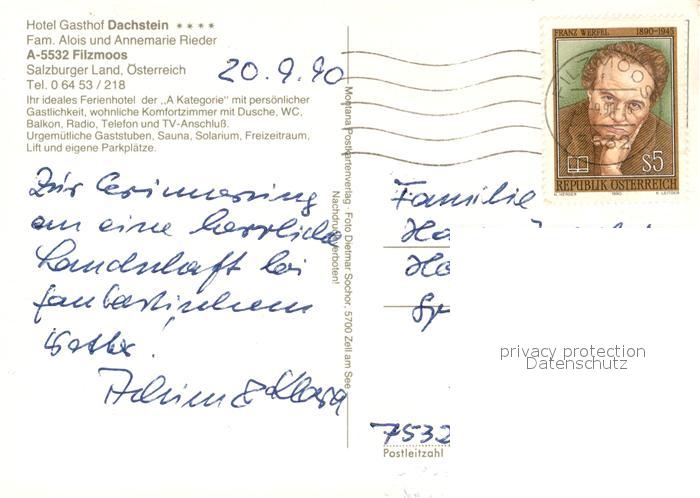 Hotel Gasthof Dachstein ****
Fam. Alois und Annemarie Rieder
A-5532 Filzmoos
Salzburger Land, Österreich
Tel. 0 64 53 / 218
Ihr ideales Ferienhotel der „A Kategorie" mit persönlicher
Gastlichkeit, wohnliche Komfortzimmer mit Dusche, WC,
Balkon, Radio, Telefon und TV-Anschluß.
Urgemütliche Gaststuben, Sauna, Solarium, Freizeitraum,
Lift und eigene Parkplätze.
20.9.90
Zur Erinnerung
an eine herrliche
Landschaft bei
fantastischem
Wetter.
&
Montana Postkartenverlag · Foto Dietmar Sochor, 5700 Zell am See
Nachdruck verboten!
FRANZ WERFEL 1890-1945
FILZMOOS
5532
S5
REPUBLIK ÖSTERREICH
1990
Familie
Ha
Ha
Sp
7532
Postleitzahl
privacy protection
Datenschutz